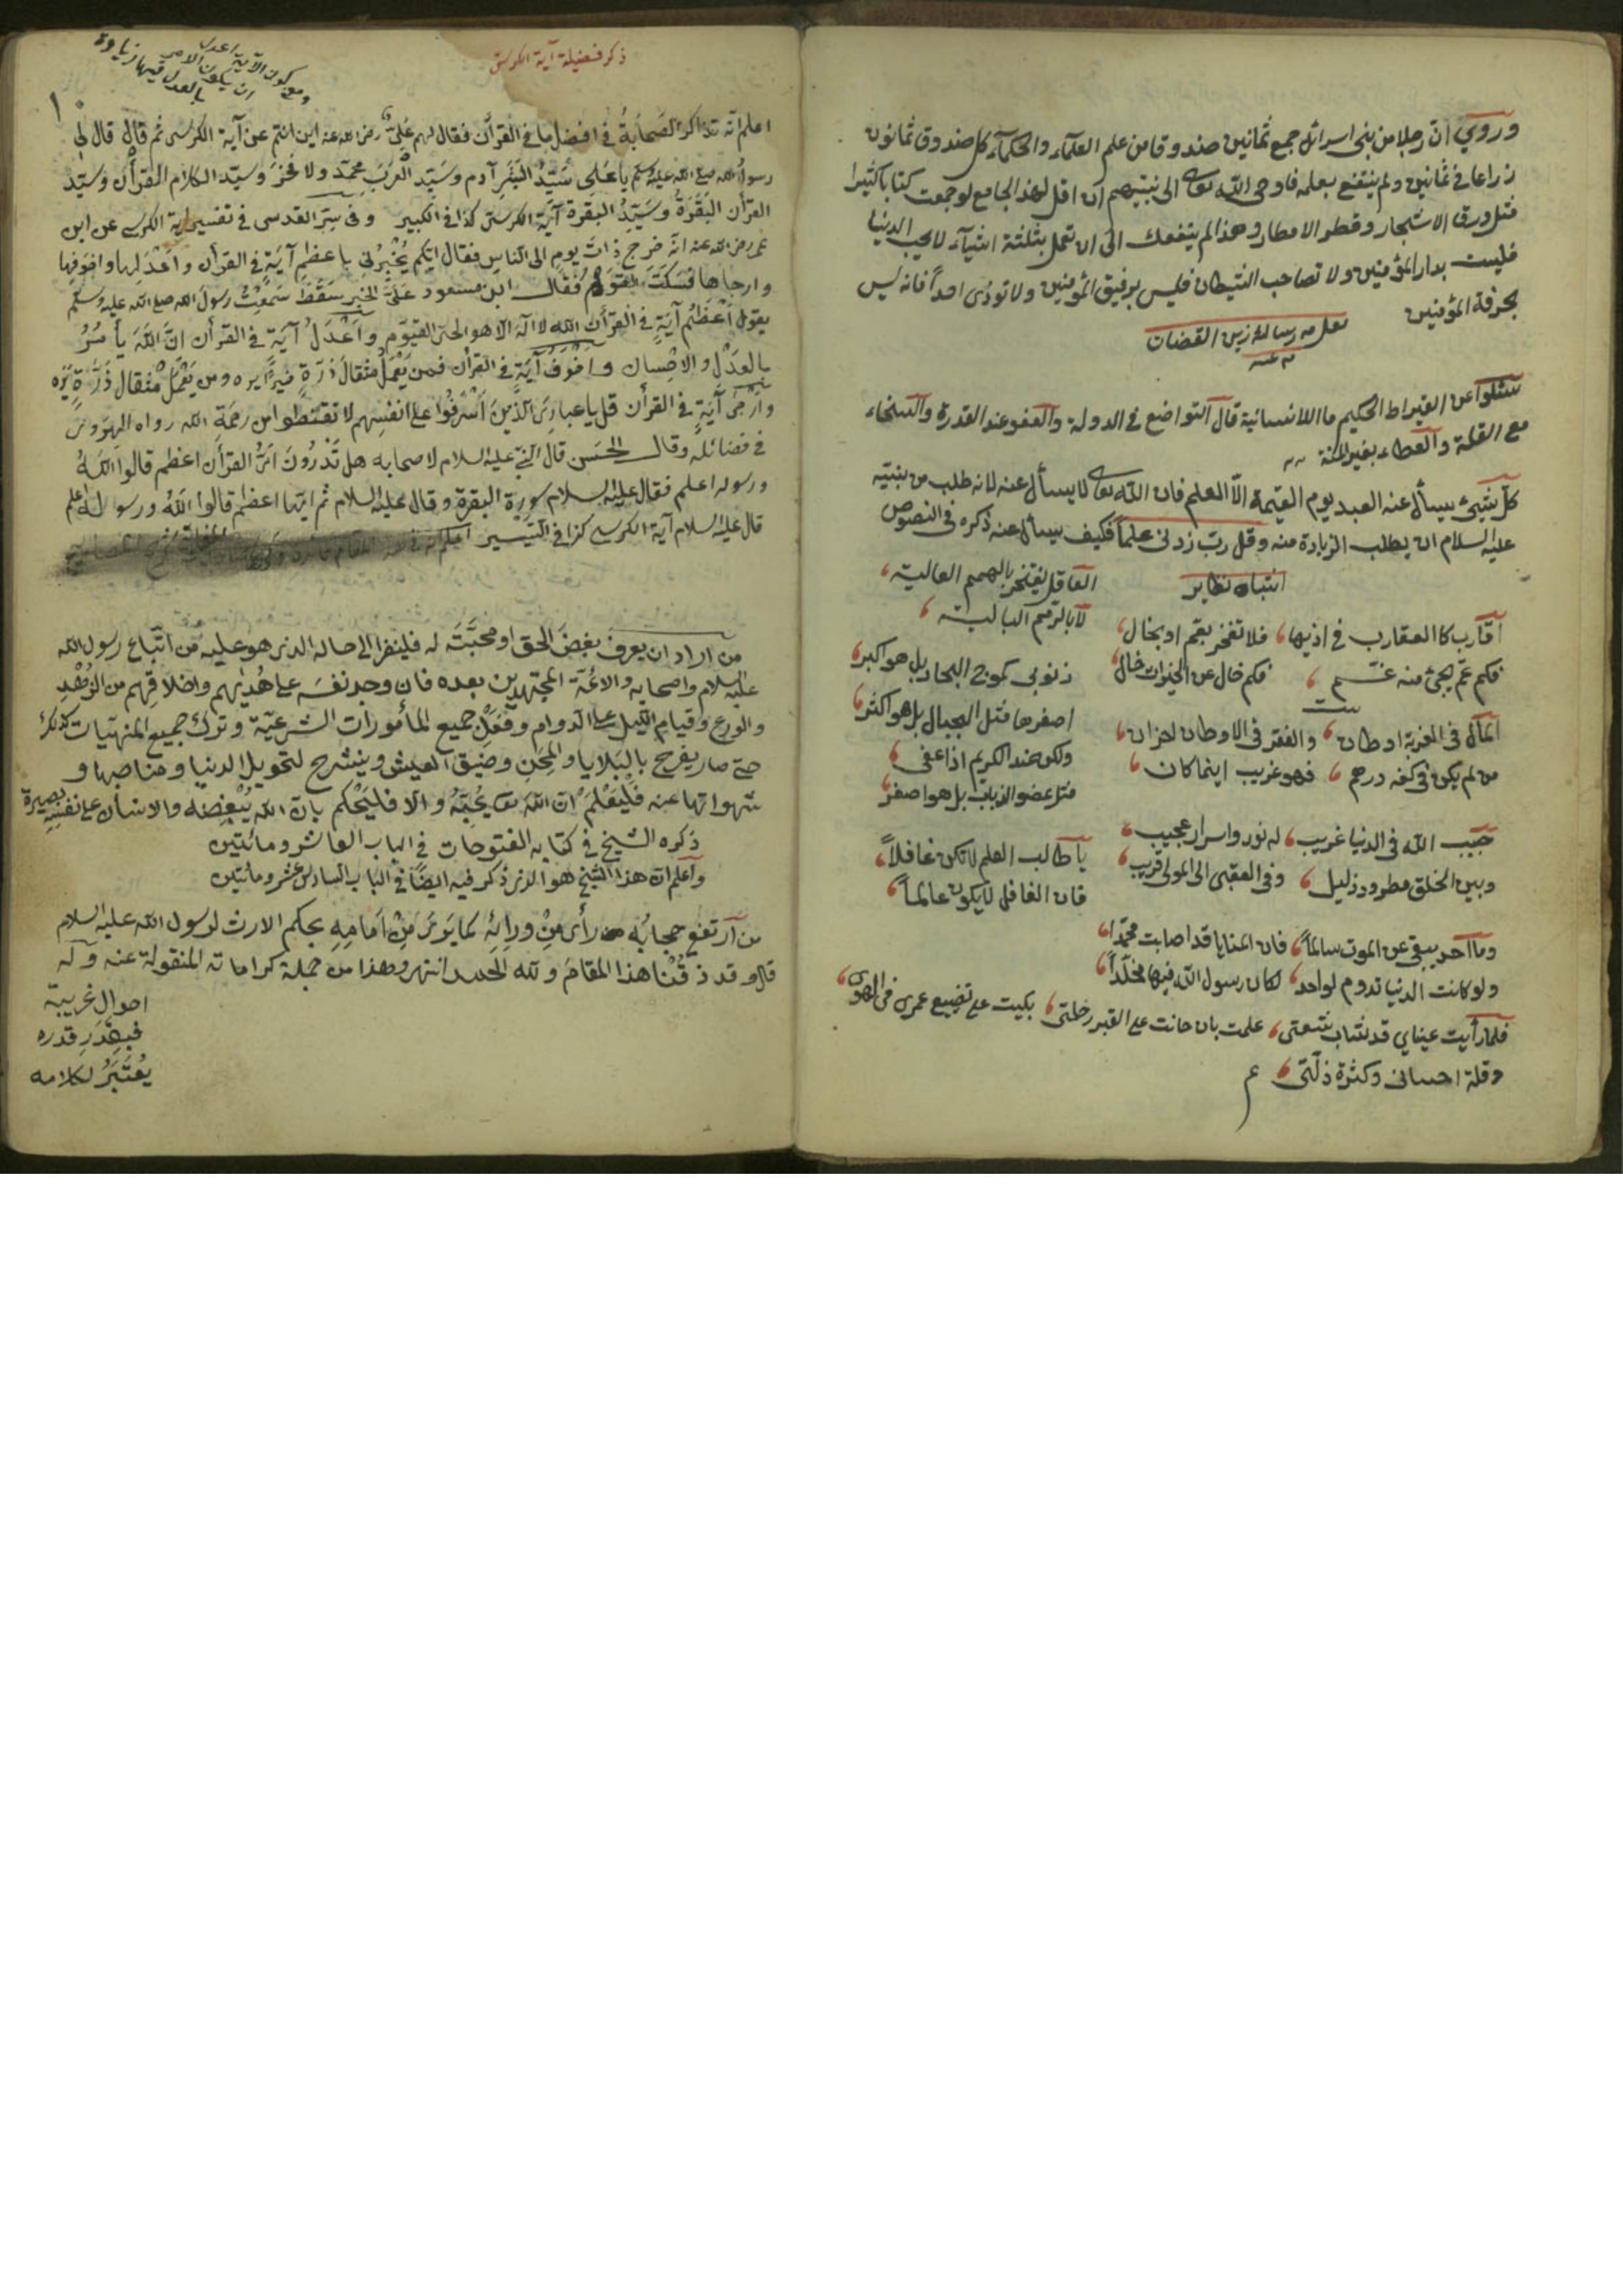 وروي ان رجلا من بنى اسرائل جمع ثمانين صندوقا من علم العلماء والحكماء كل صندوق ثمانون
ذراعا فى ثمانين ولم ينتفع بعلمه فاوحى الله تعالى الى نبيهم ان اقل لهذا الجامع لو جمعت كتابا كثيرا
مثل ورق الاشجار وقطر الامطار وهذا لم ينفعك الى ان تعمل بثلثة اشياء لا يحب الدنيا
فليست بدار المؤمنين ولا تصاحب الشيطان فليس برفيق المؤمنين ولا تؤذى احداً فانه ليس
بحرفة المؤمنين
نقل من رسالة زين القضات
سئلوا عن القيراط الحكيم ما الانسانية قال التواضع فى الدولة والعفو عند القدرة والسخاء
مع القلة والعطاء بغير المنة
كل شيئ يسأل عنه العبد يوم القيمة الا العلم فان الله تعالى لا يسأل عنه لانه طلب من نبيه
عليه السلام ان يطلب الزيادة منه وقل رب زدنى علماً فكيف يسأل عنه ذكره فى النصوص
اشباه نظاير
العاقل يفتخر بالهمم العالية
لا بالرمم البالية
اقارب كالعقارب فى اذيها فلا تفخر بعم او بخال
فكم عم يجئ منه غم فكم خال عن الخيرات خال
ذنوبى كموج البحار بل هو اكبر
اصغرها مثل الجبال بل هو اكثر
ولكن عند الكريم اذا عفى
مثل عضو الذباب بل هو اصغر
المال فى الغربة اوطان والفقر فى الاوطان احزان
من لم يكن فى كفه درهم فهو غريب اينما كان
حبيب الله فى الدنيا غريب له نور واسرار عجيب
وبين الخلق مطرود ذليل وفى العقبى الى المولى قريب
يا طالب العلم لا تكن غافلاً
فان الغافل لا يكون عالماً
وما احد يبقى عن الموت سالماً فان المنايا قد اصابت محمدا
ولو كانت الدنيا تدوم لواحد لكان رسول الله فيها مخلداً
فلما رأيت عيناي قد شاب شعتى علمت بان حانت على القبر رحلتى بكيت على تضييع عمرى فى الهوى
وقلة احسانى وكثرة ذلتى
م
ذكر فضيلة آية الكرسى
ومع كون الآية اعدل
ان يكون الامر
بالعدل فيها زيادة
١٠
اعلم انه تذاكر الصحابة فى افضل ما فى القرآن فقال لهم على رضى الله عنه اين انتم عن آية الكرسى ثم قال قال لى
رسول الله صلى الله عليه وسلم يا على سيد البشر آدم وسيد العرب محمد ولا فخر وسيد الكلام القرآن وسيد
القرآن البقرة وسيد البقرة آية الكرسى كذا فى الكبير وفى سر القدسى فى تفسير اية الكرسى عن ابن
عمر رضى الله عنه انه خرج ذات يوم الى الناس فقال ايكم يخبرنى باعظم آية فى القرآن واعدلها واخوفها
وارجاها فسكت القوم فقال ابن مسعود على الخبير سقط سمعت رسول الله صلى الله عليه وسلم
يقول اعظم آية فى القرآن الله لا اله الا هو الحى القيوم واعدل آية فى القرآن ان الله يأمر
بالعدل والاحسان واخوف آية فى القرآن فمن يعمل مثقال ذرة خيراً يره ومن يعمل مثقال ذرة يره
وارجى آية فى القرآن قل يا عبادى الذين اسرفوا على انفسهم لا تقنطوا من رحمة الله رواه الهروى
فى فضائله وقال الحسن قال النبى عليه السلام لاصحابه هل تدرون اى القرآن اعظم قالوا الله
ورسوله اعلم فقال عليه السلام سورة البقرة وقال عليه السلام ثم ايها اعظم قالوا الله ورسوله اعلم
قال عليه السلام آية الكرسى كذا فى التيسير
من اراد ان يعرف بغض الحق او محبته له فلينظر الى حاله الذى هو عليه من اتباع رسول الله
عليه السلام واصحابه والائمة المجتهدين بعده فان وجد نفسه على هديهم واخلاقهم من الزهد
والورع وقيام الليل على الدوام وفعل جميع المأمورات الشرعية وترك جميع المنهيات كذلك
حتى صار يفرح بالبلايا والمحن وضيق العيش وينشرح لتحويل الدنيا ومناصبها و
شهواتها عنه فليعلم ان الله تعالى يحبه والا فليحكم بان الله يبغضه والانسان على نفسه بصيرة
ذكره الشيخ فى كتابه الفتوحات فى الباب العاشر ومائتين
واعلم ان هذا الشيخ هو الذى ذكر فيه ايضاً فى الباب السادس عشر ومائتين
من ارتفع حجابه رأى من ورائه كما يرى من امامه بحكم الارث لرسول الله عليه السلام
قال وقد ذقنا هذا المقام ولله الحمد انتهى وهذا من جملة كراماته المنقولة عنه وله
احوال غريبة
فبقدر قدره
يعتبر لكلامه